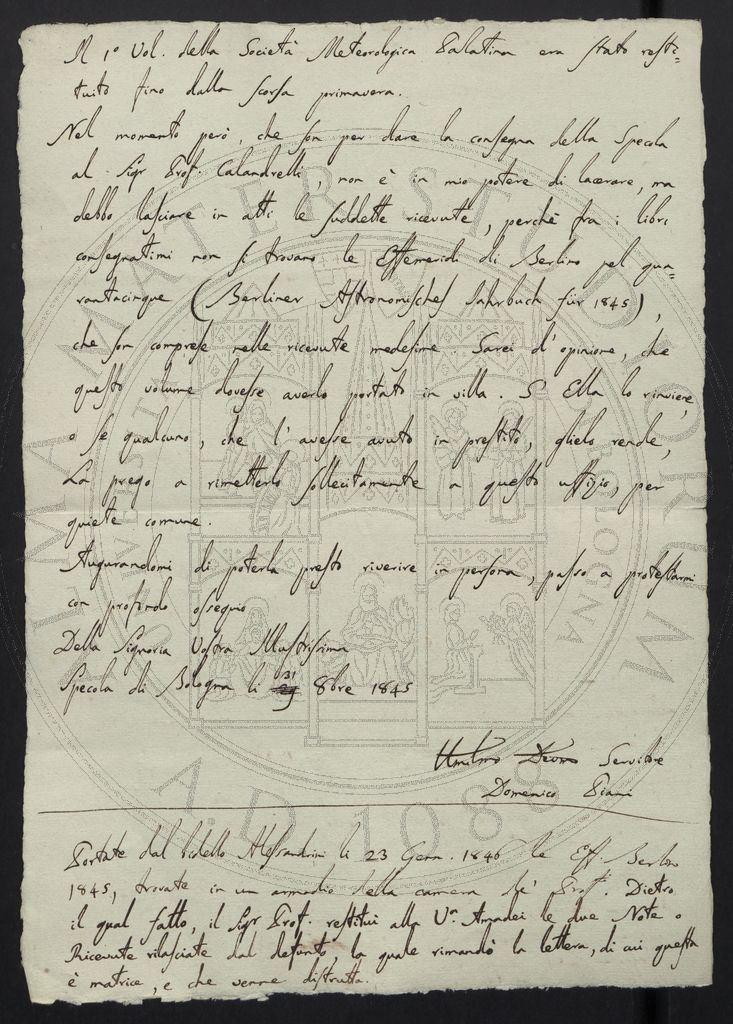 Il 1º Vol. della Società Meteorologica Palatina era stato resti=
tuito fino dalla scorsa primavera.
Nel momento però, che son per dare la consegna della Specola
al Sigr Prof. Calandrelli, non è in mio potere di lacerare, ma
debbo lasciare in atti le suddette ricevute, perchè fra i libri
consegnatimi non si trovano le Effemeridi di Berlino pel qua=
rantacinque (Berliner Astronomisches Jahrbuch für 1845),
che son comprese nelle ricevute medesime. Sarei d'opinione, che
questo volume dovesse averlo portato in villa. S' Ella lo rinviene,
o se qualcuno, che l'avesse avuto in prestito, glielo rende,
La prego a rimetterlo sollecitamente a questo uffizio, per
quiete comune.
Augurandomi di poterla presto riverire in persona, passo a protestarmi
con profondo ossequio
Della Signoria Vostra Illustrissima
Specola di Bologna li 31 8bre 1845
Umilmo Devmo Servitore
Domenico Piani
Portate dal bidello Alessandrini li 23 Genn. 1846 le Eff. Berlino
1845, trovate in un armadio della camera de' Prof. Dietro
il qual fatto, il Sigr Prof. restituì alla Va Amadei le due Note o
Ricevute rilasciate dal defunto, la quale rimandò la lettera, di cui questa
è matrice, e che venne distrutta.
ALMA MATER STUDIORUM
A.D. 1088